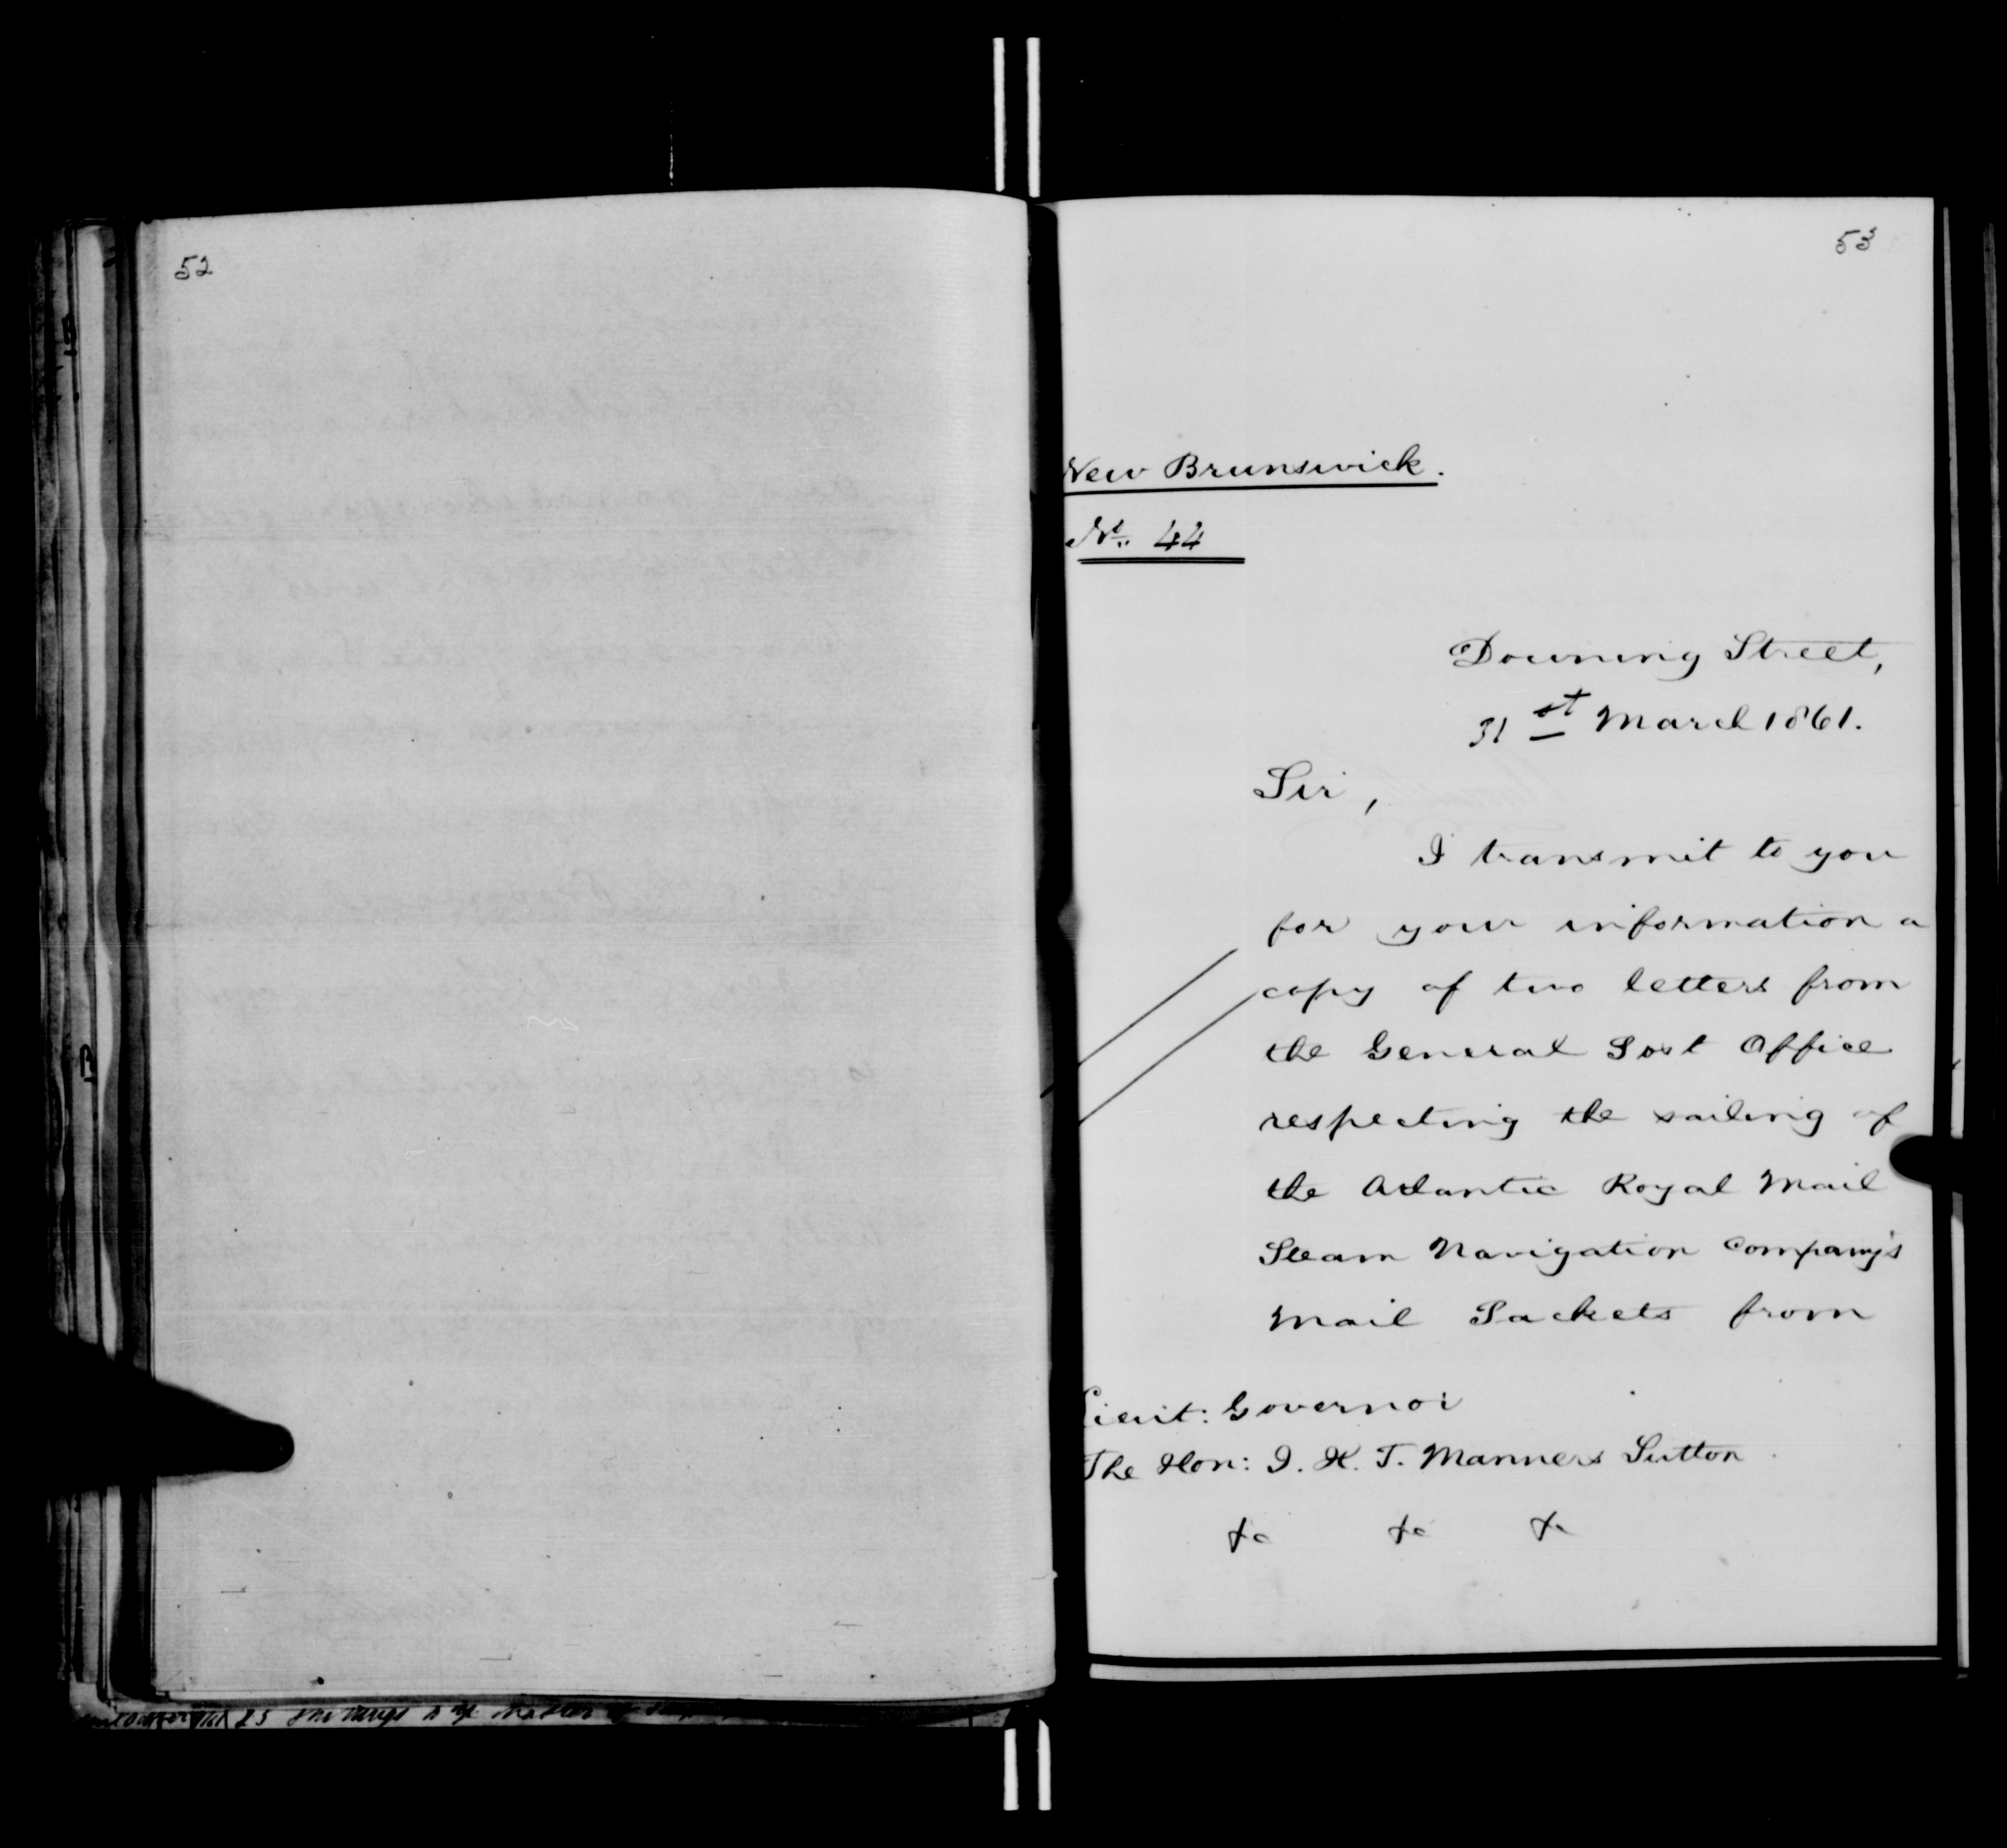 52
53
New Brunswick.
No. 44
Downing Street,
31st March 1861.
Sir,
I transmit to you
for your information a
copy of two letters from
the General Post Office
respecting the sailing of
the Atlantic Royal Mail
Steam Navigation Company's
Mail Packets from
Lieut: Governor
The Hon: J. H. T. Manners Sutton
&c &c &c